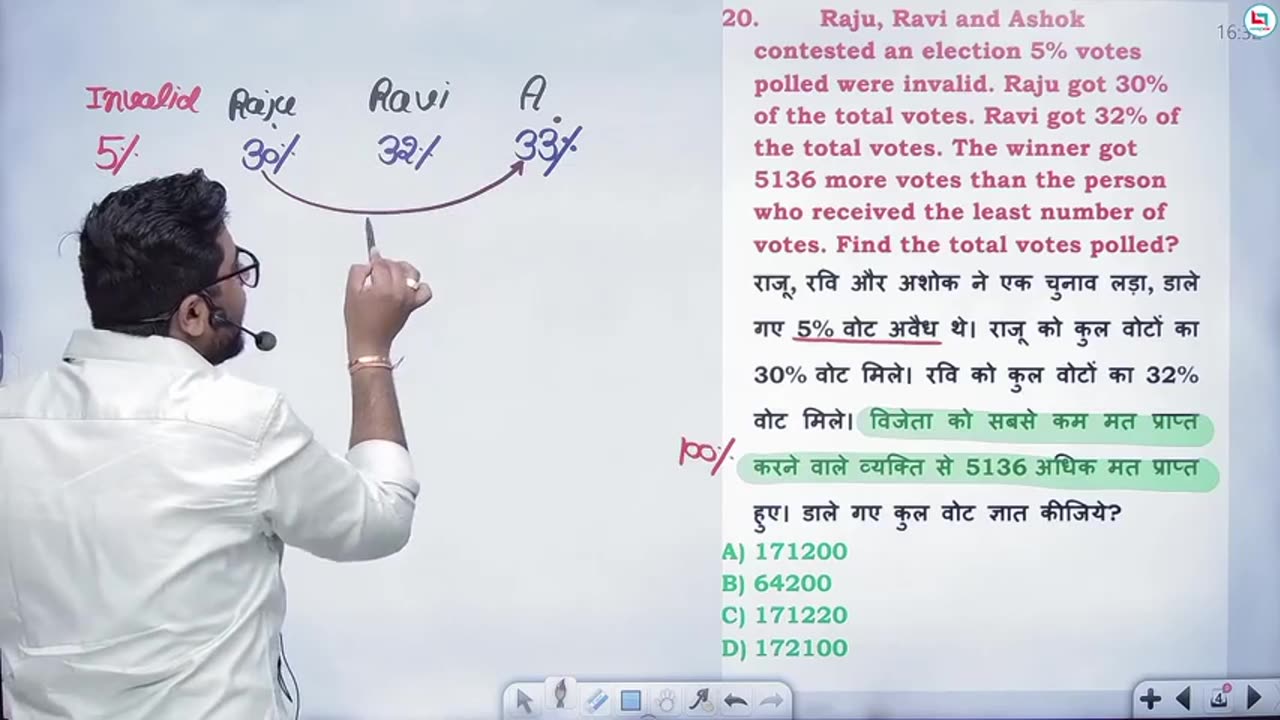 Invalid Raju Ravi A
5% 30% 32% 33%
20. Raju, Ravi and Ashok
contested an election 5% votes
polled were invalid. Raju got 30%
of the total votes. Ravi got 32% of
the total votes. The winner got
5136 more votes than the person
who received the least number of
votes. Find the total votes polled?
राजू, रवि और अशोक ने एक चुनाव लड़ा, डाले
गए 5% वोट अवैध थे। राजू को कुल वोटों का
30% वोट मिले। रवि को कुल वोटों का 32%
वोट मिले। विजेता को सबसे कम मत प्राप्त
100%
करने वाले व्यक्ति से 5136 अधिक मत प्राप्त
हुए। डाले गए कुल वोट ज्ञात कीजिये?
A) 171200
B) 64200
C) 171220
D) 172100
4